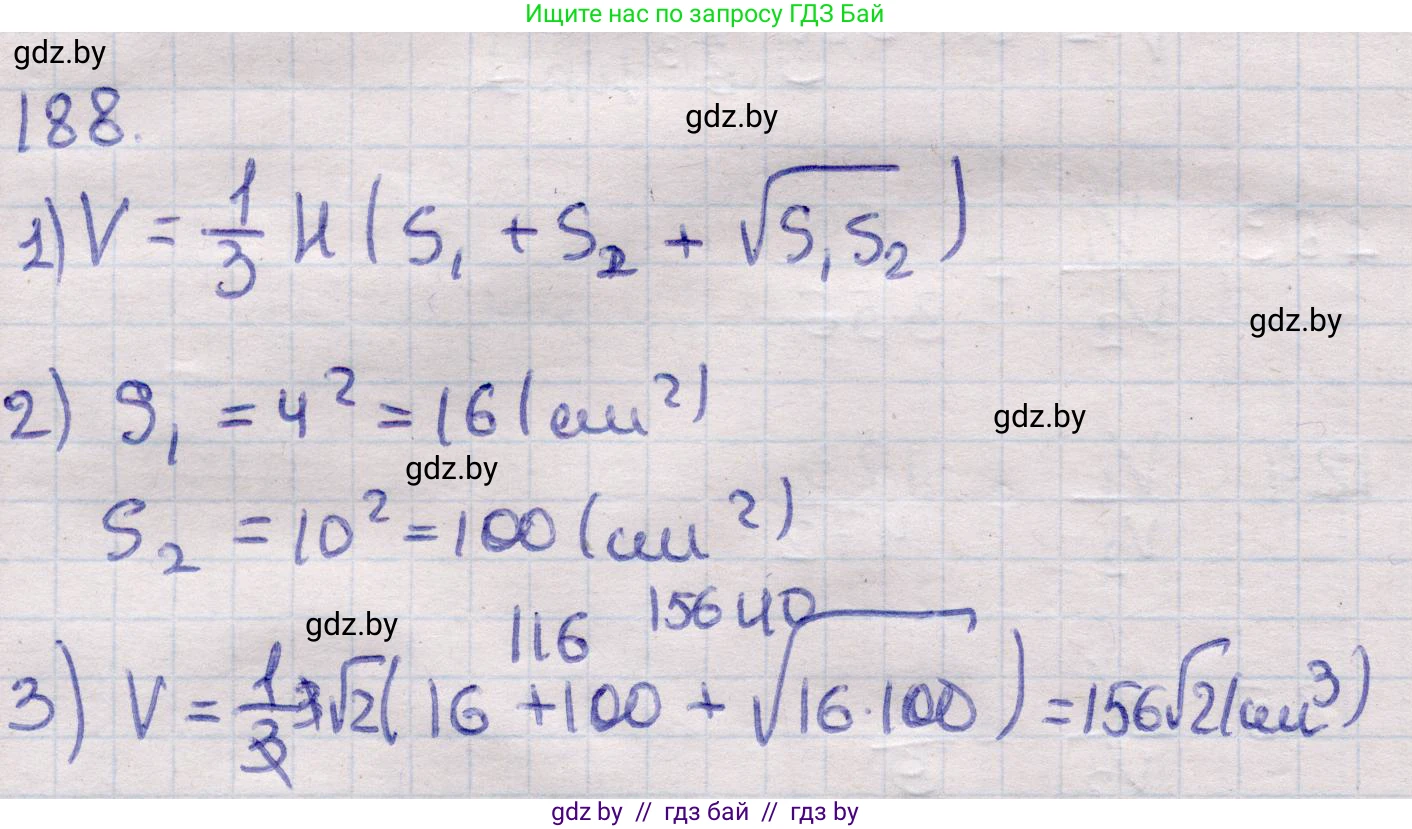 Ищите нас по запросу ГДЗ Бай
gdz.by
188.
gdz.by
1) V = 1/3 H (S₁ + S₂ + √S₁S₂)
gdz.by
2) S₁ = 4² = 16 (см²)
gdz.by
gdz.by
S₂ = 10² = 100 (см²)
gdz.by
116 156 40
3) V = 1/3 3√2 (16 + 100 + √16·100) = 156√2 (см³)
gdz.by // гдз бай // гдз by